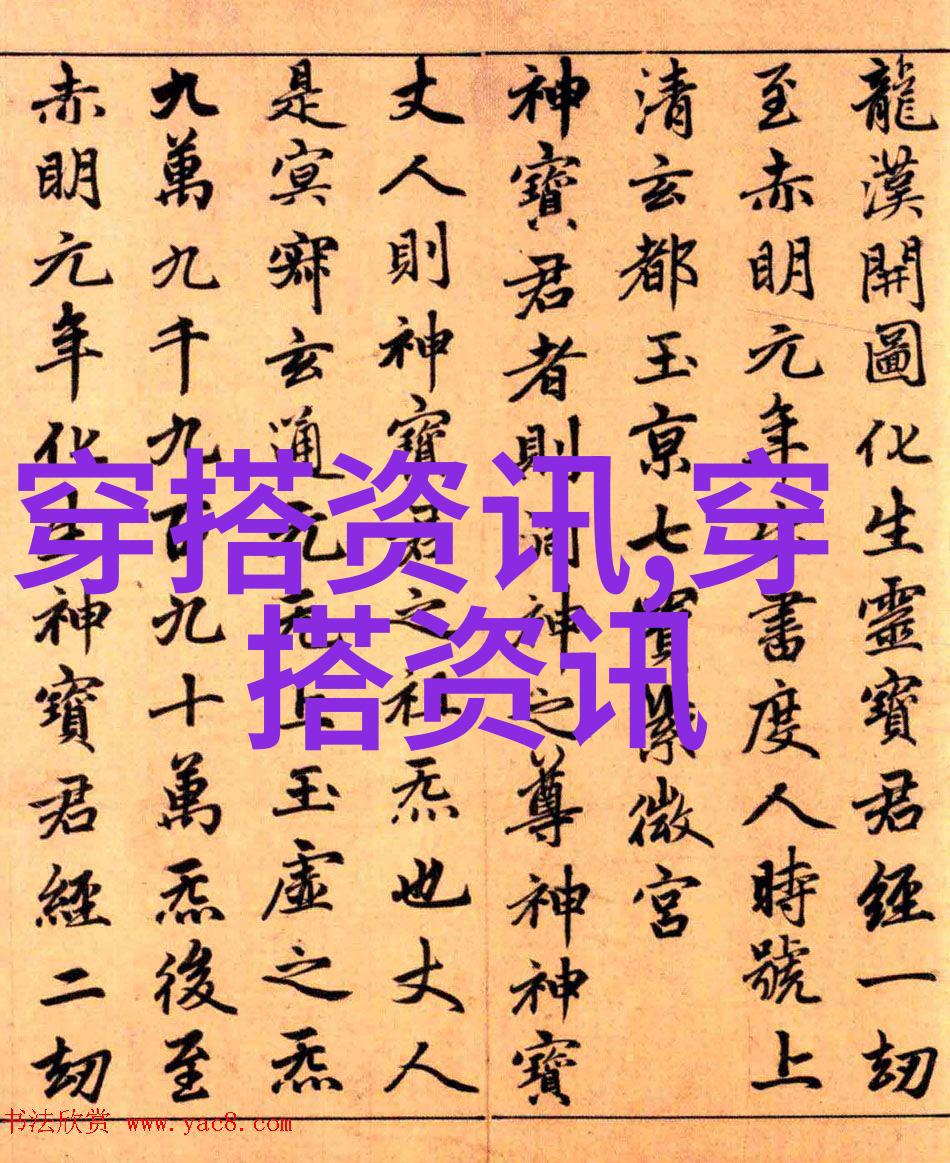 龍漢開圖化生靈寶君經一劫
至赤明元年 書度人時號上
清玄都玉京七寶紫微宮
神寶君者則洞神之尊神神寶
丈人則神寶君之 炁也丈人
是冥寂玄通元无上玉虛之炁
九萬九千九百九十萬炁後至
赤明元年化生神寶君經二劫
穿搭资讯,穿
搭资讯
书法欣赏 www.yac8.com